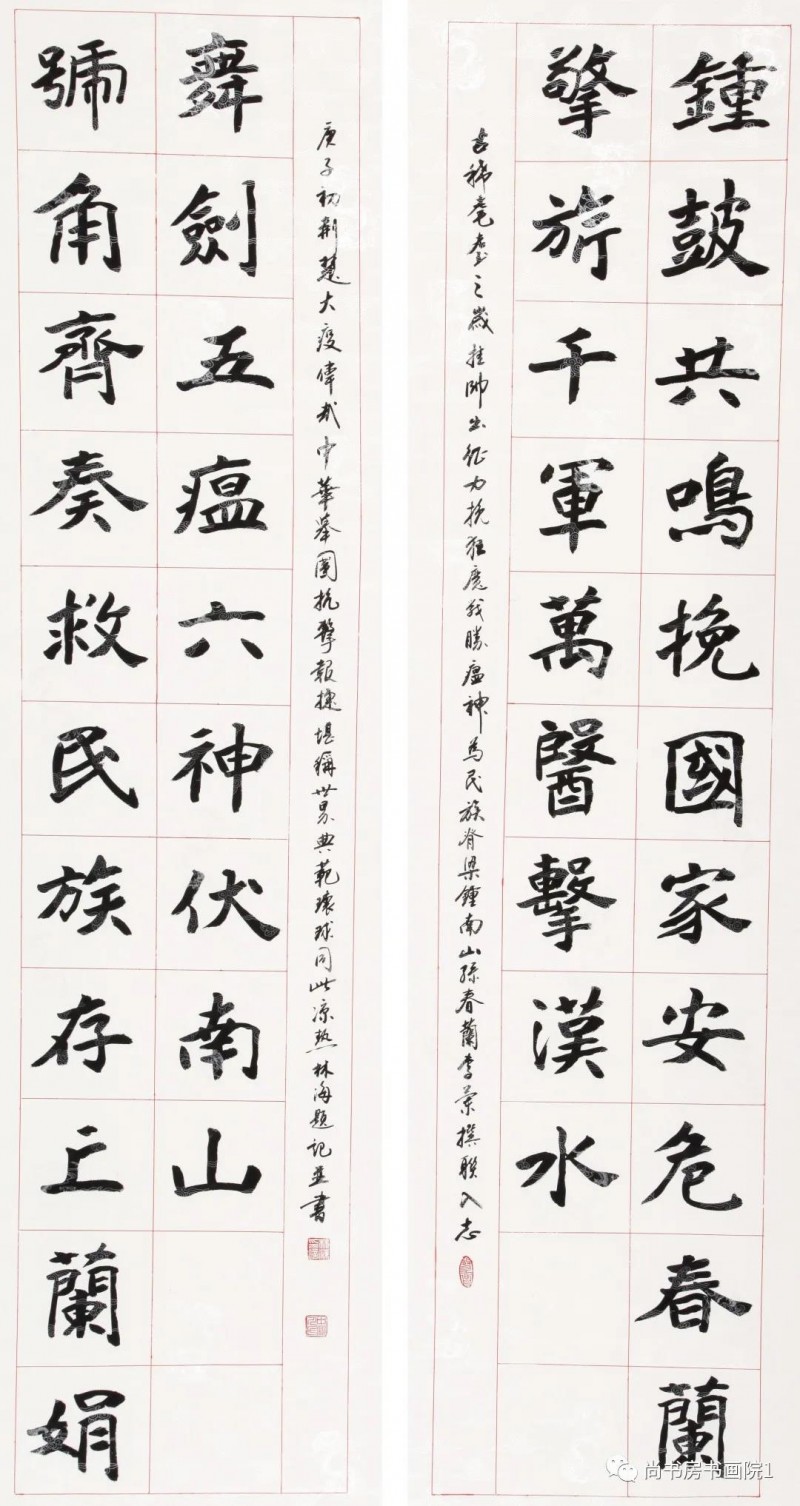 鍾鼓共鳴挽國家安危春蘭
擎旂千軍萬醫擊漢水
古稀耄耋之歲挂帥出征力挽狂魔我勝瘟神為民族脊梁鍾南山孫春蘭李撰聯入志
號角齊奏救民族存亡蘭娟
舞劍五瘟六神伏南山
庚子初荆楚大疫偉哉中華舉國抗擊報捷堪稱世界典範環球同此涼熱林海題記並書
尚书房书画院1